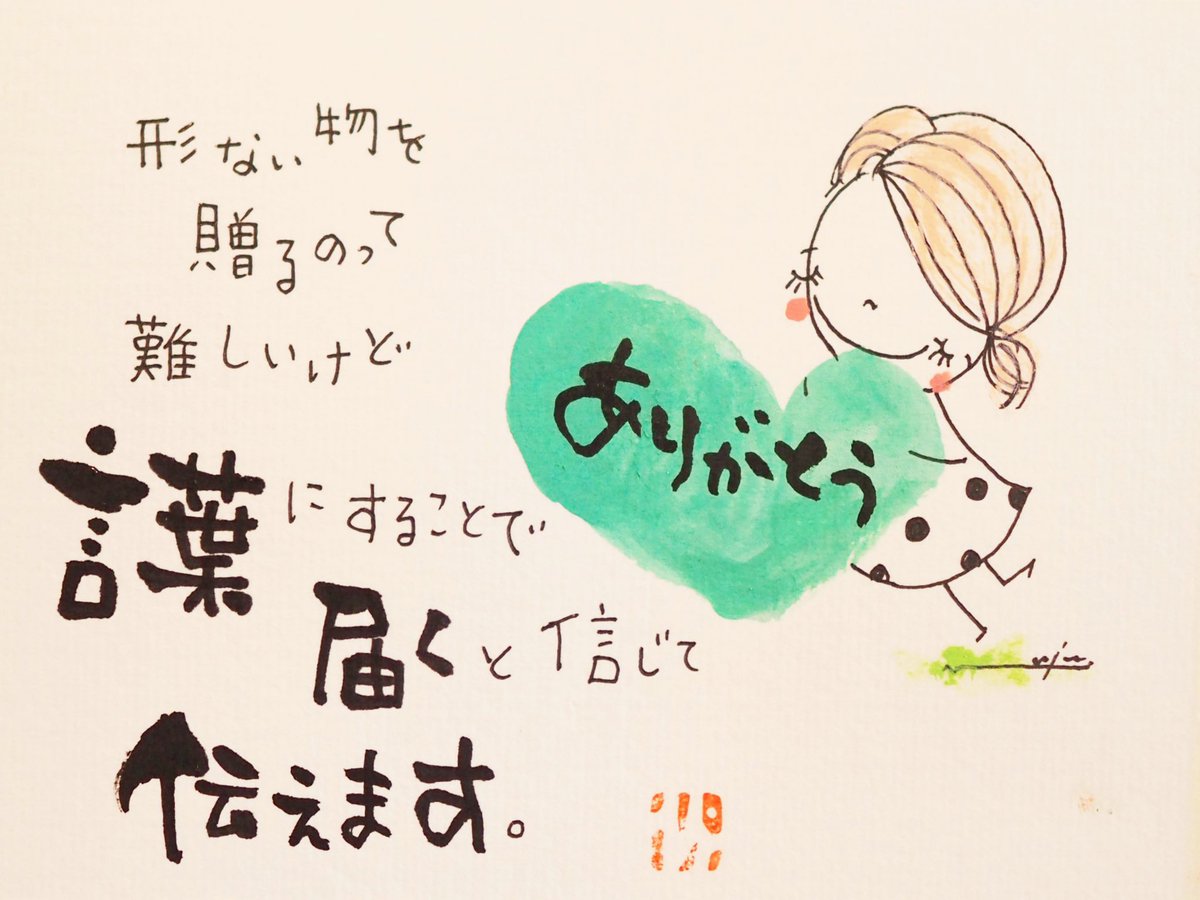 形ない物を
贈るのって
難しいけど
言葉にすることで
届くと信じて
伝えます。
ありがとう